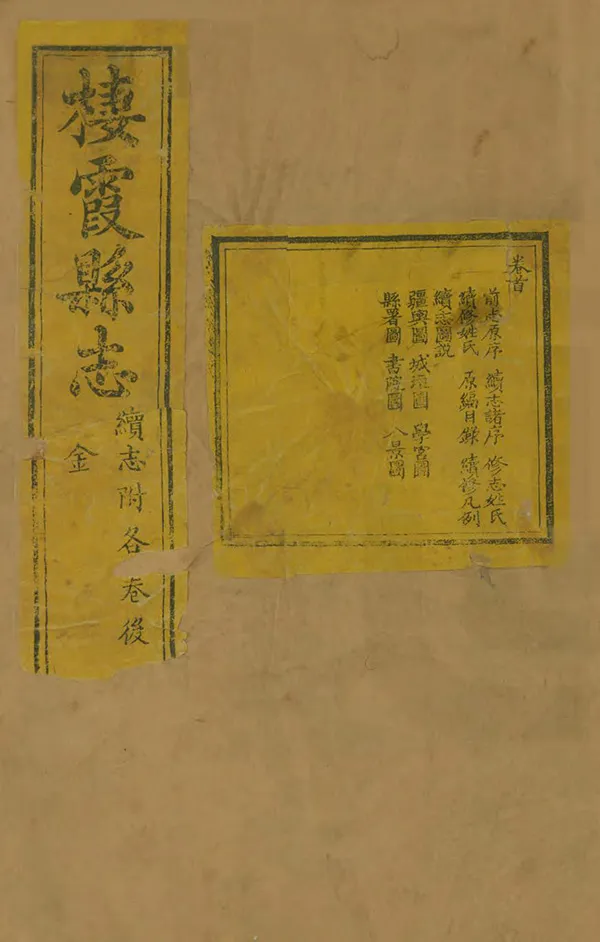 卷首
前志原序 續志諸序 修志姓氏
續修姓氏 原編目錄 續修凡例
續志圖說
疆輿圖 城垣圖 學宮圖
縣署圖 書院圖 八景圖
棲霞縣志
續志附各卷後
金